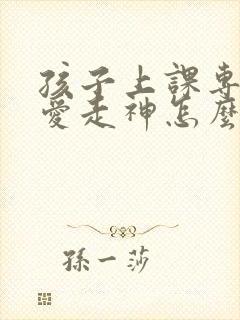 孩子上課專
愛走神怎麼
孫一莎